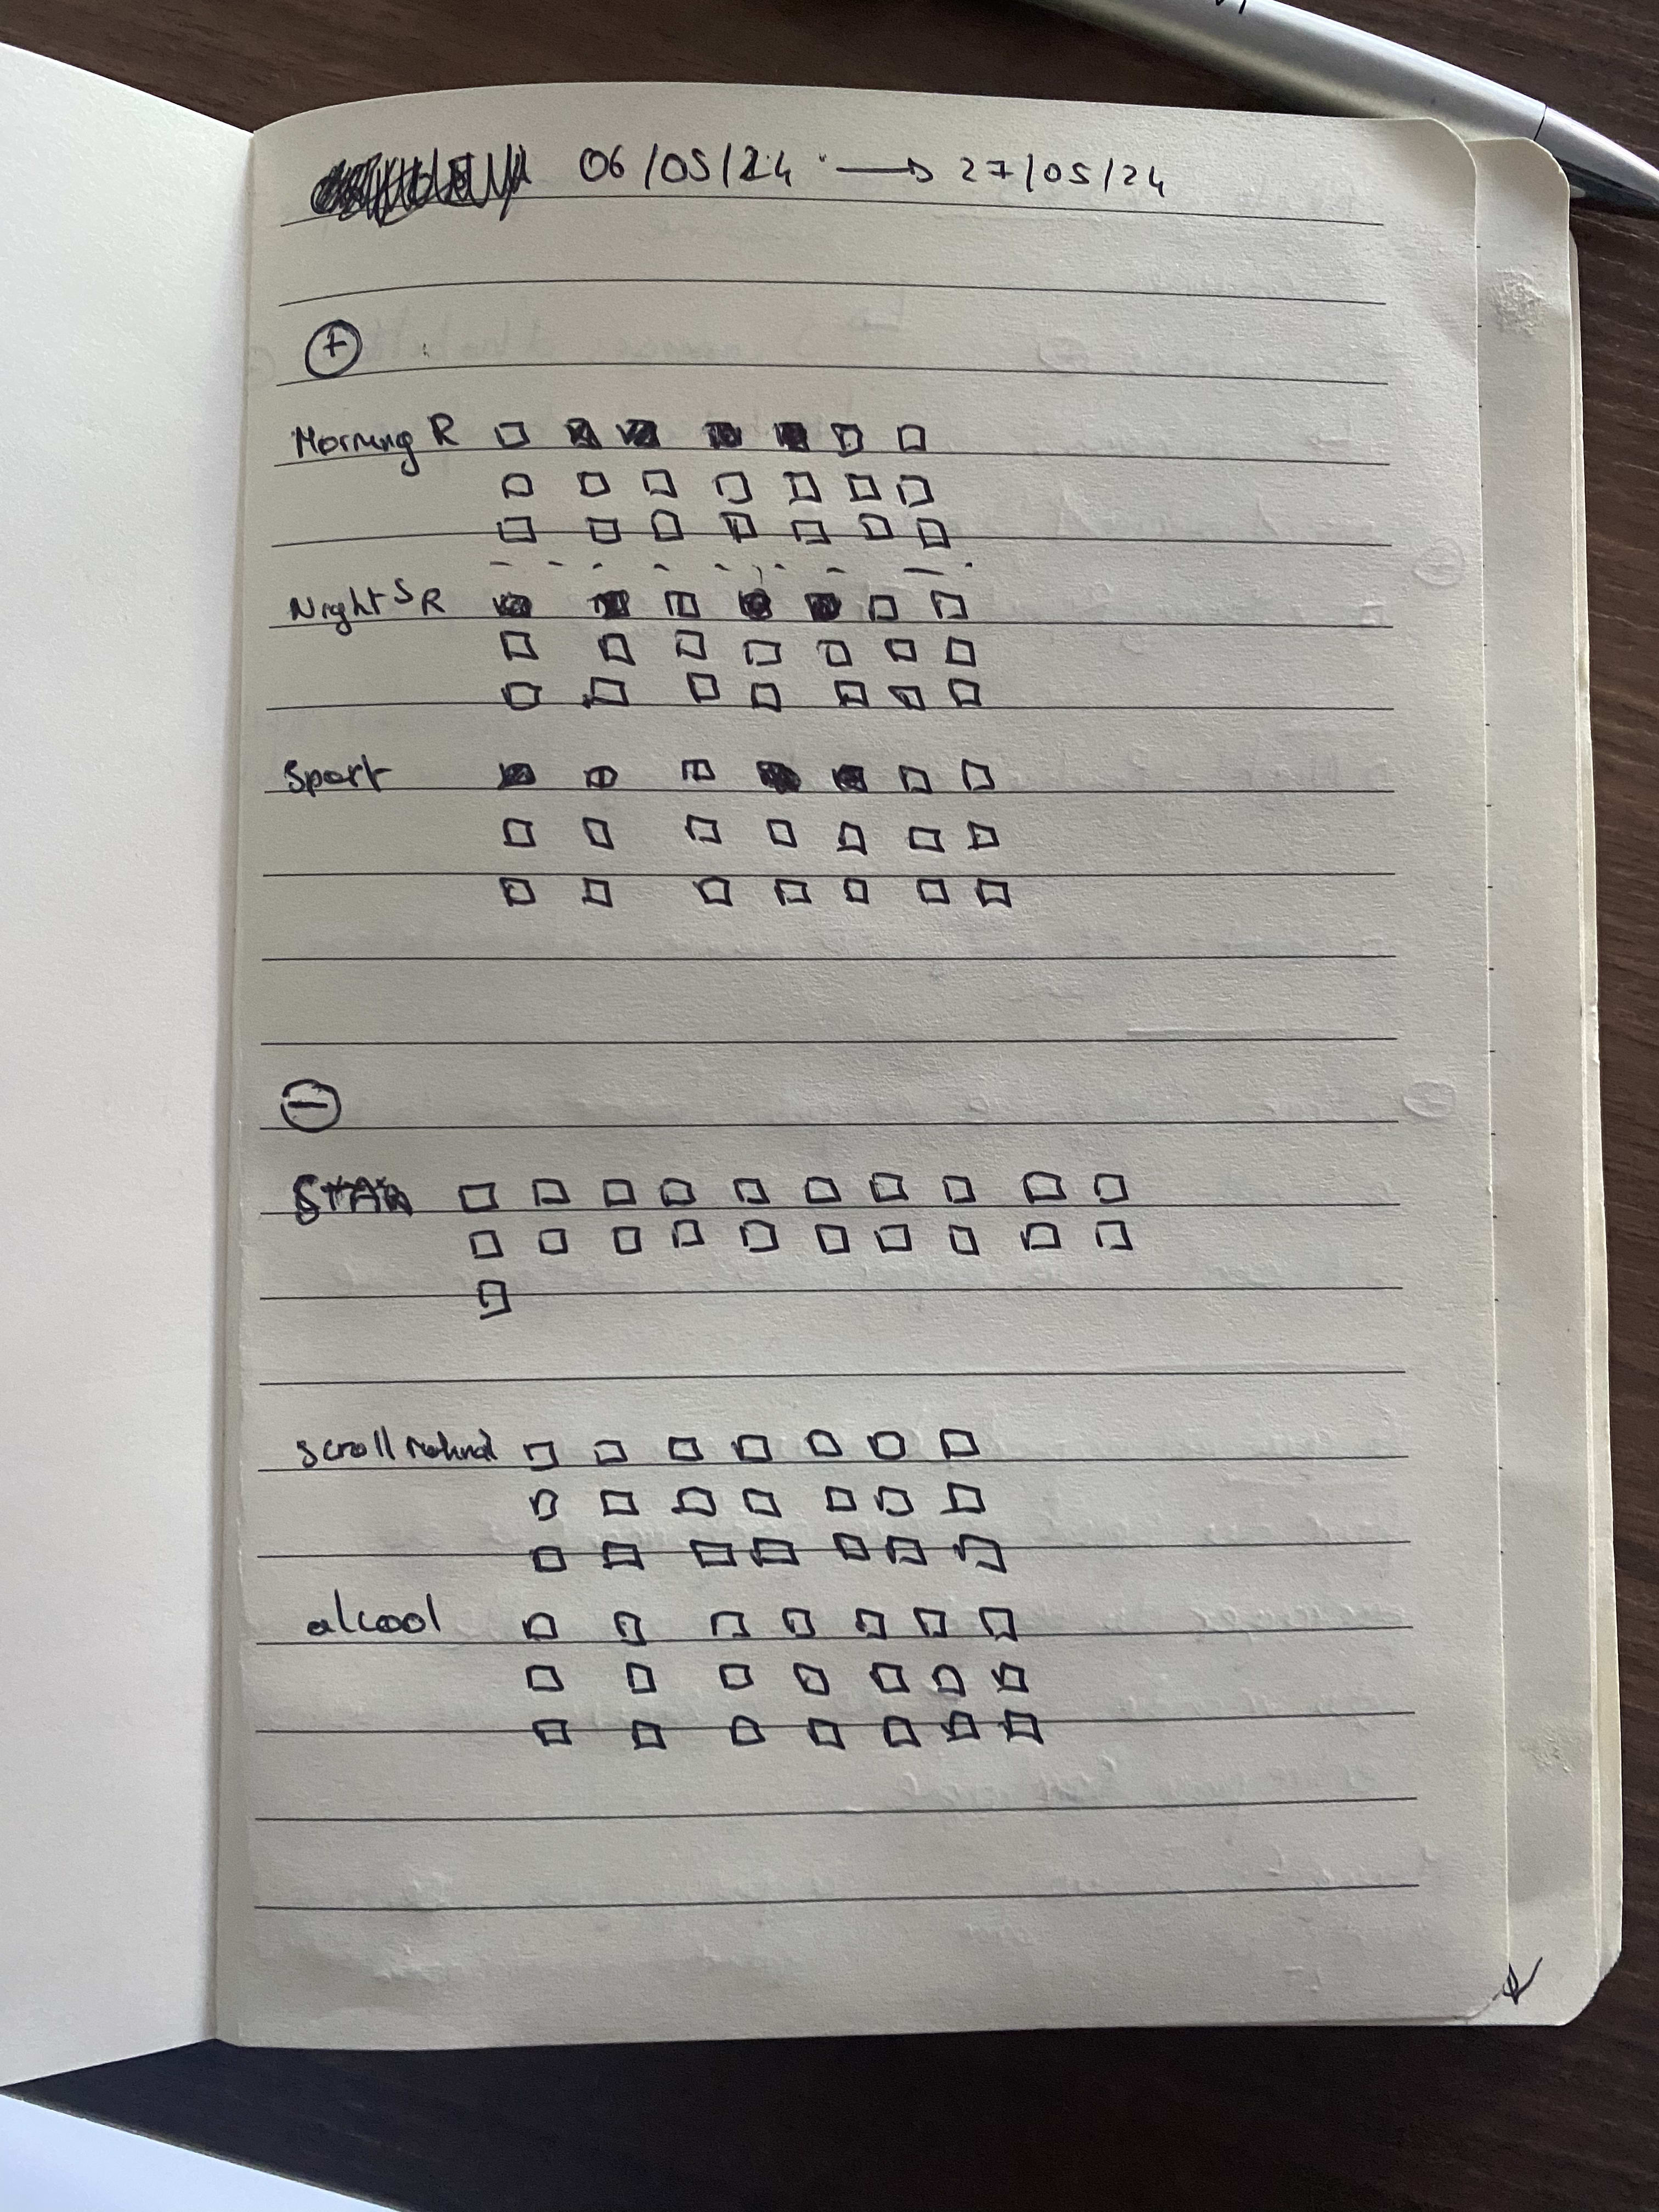 06/05/24 → 27/05/24
+
Morning R
Night S R
Sport
-
scroll
alcool